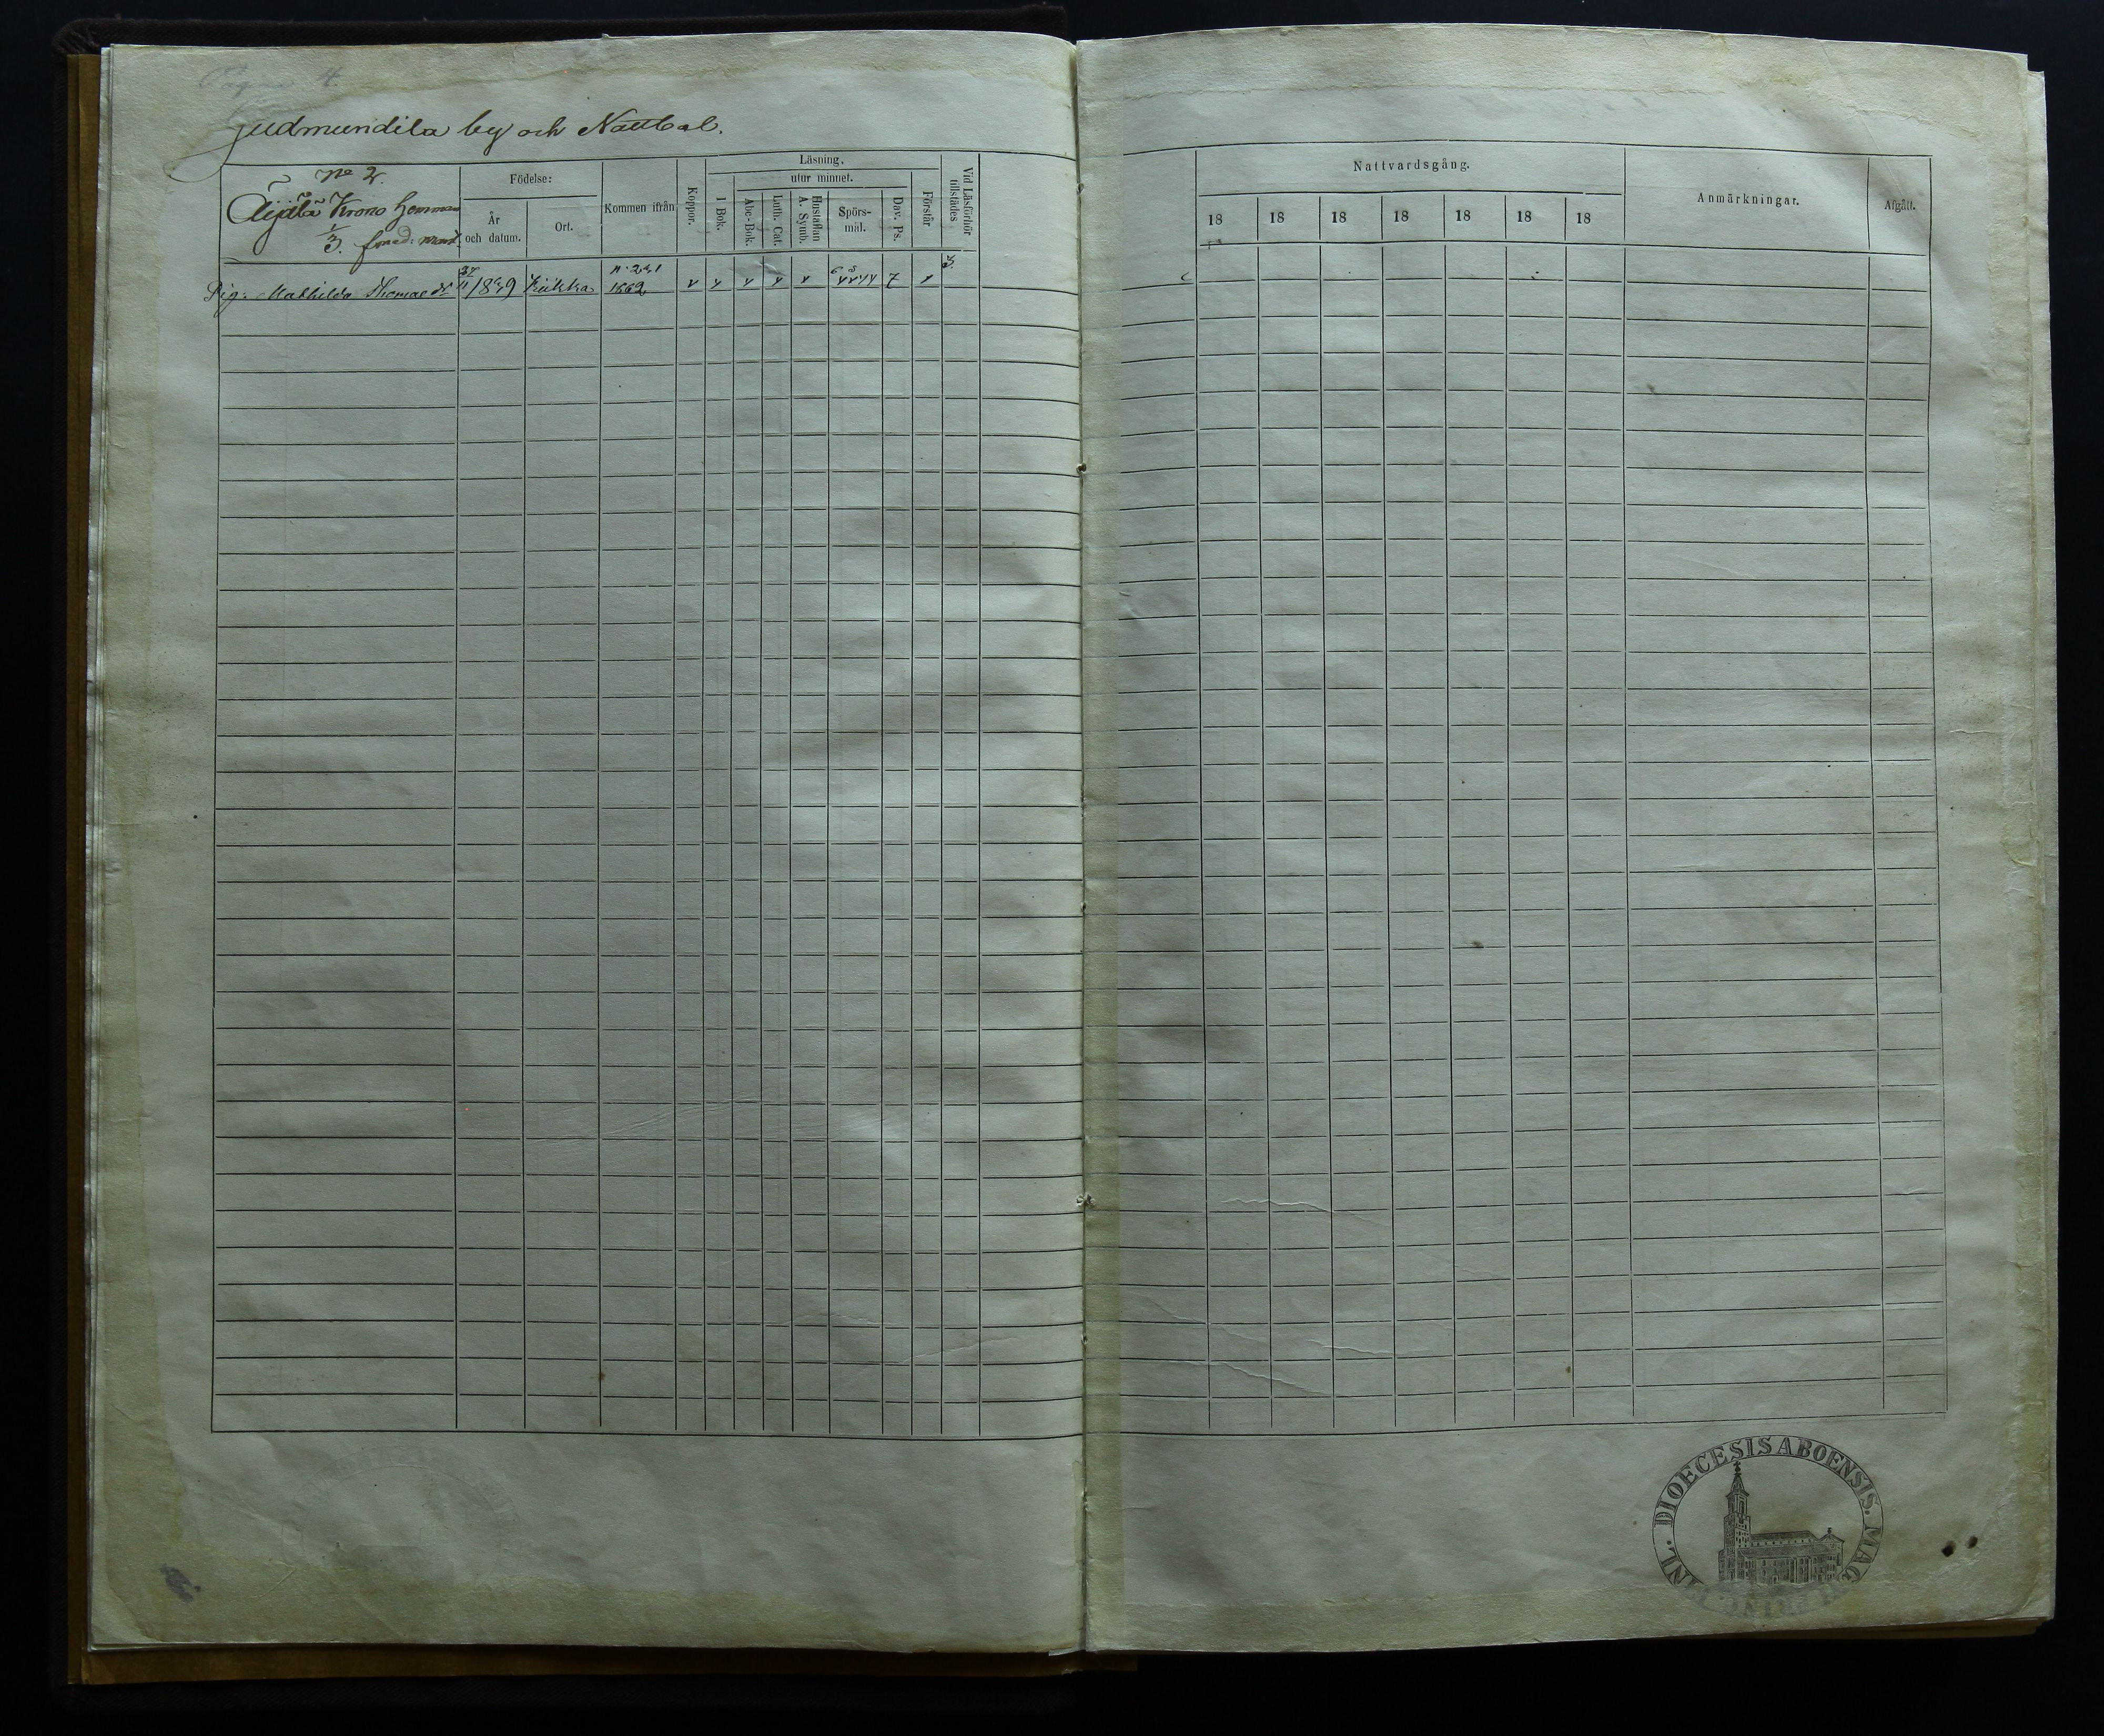 Pagina 4.
Judmundila by och Nattbal.
No 2.
Äijälä Krono Hemman
1/3. med: mant.
Födelse:
År och datum.
Ort.
Kommen ifrån
Koppor.
Läsning.
I Bok.
utur minnet.
Abc-Bok.
Luth. Cat.
Hustaflan A. Symb.
Spörs-mål.
Dav. Ps.
Förstår
Vid Läsförhör tillstädes.
Pig: Mathilda Thomasdr 1849 Kiikka 1862
Nattvardsgång.
18 18 18 18 18 18 18
Anmärkningar.
Afgått.
DIOECESIS ABOENSIS. MAG